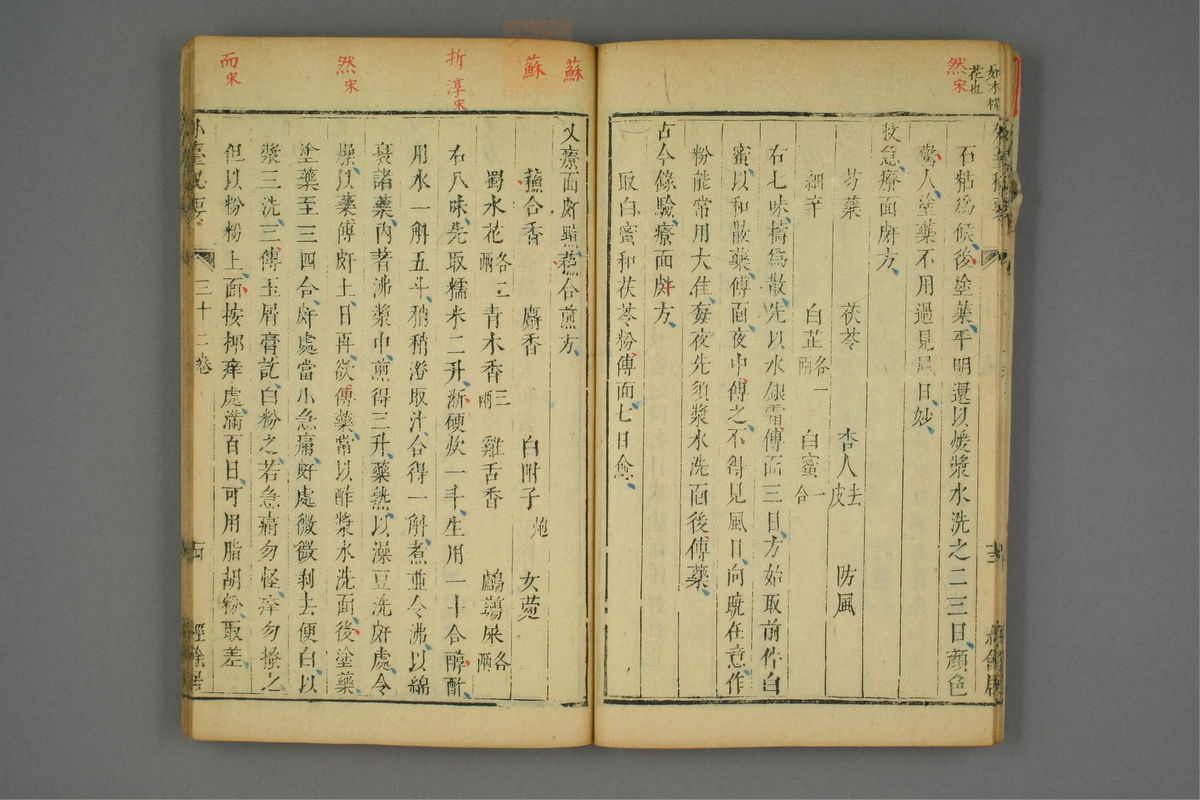 如木槿
花也
然宋
石粘為候後塗藥平明還以煖漿水洗之二三日顏色
驚人塗藥不用過見風日妙
救急療面皯方
芍藥　茯苓　杏人去皮　防風
細辛　白芷各一兩　白蜜一合
右七味擣為散先以水銀霜傅面三日方始取前件白
蜜以和散藥傅面夜中傅之不得見風日向曉任意作
粉能常用大佳每夜先須漿水洗面後傅藥
古今錄驗療面皯方
取白蜜和茯苓粉傅面七日愈
蘇
蘇
折 淳宋
然宋
而宋
又療面皯䵟蘓合煎方
蘓合香　麝香　白附子炮　女菀
蜀水花各二兩　青木香三兩　雞舌香　鸕鷀屎各兩
右八味先取糯米二升淅硬炊一斗生用一十合醇酢
用水一斛五斗稍稍𣻌取汁合得一斛煮並令沸以綿
裹諸藥內著沸漿中煎得三升藥熟以澡豆洗皯處令
燥以藥傅皯上日再欲傅藥常以酢漿水洗面後塗藥
塗藥至三四合皯處當小急痛皯處微微剝去便白以
漿三洗三傅玉屑膏訖白粉之若急痛勿怪痒勿搔之
但以粉粉上面按抑痒處滿百日可用脂胡粉取差
外臺秘要
三十二卷
經餘居